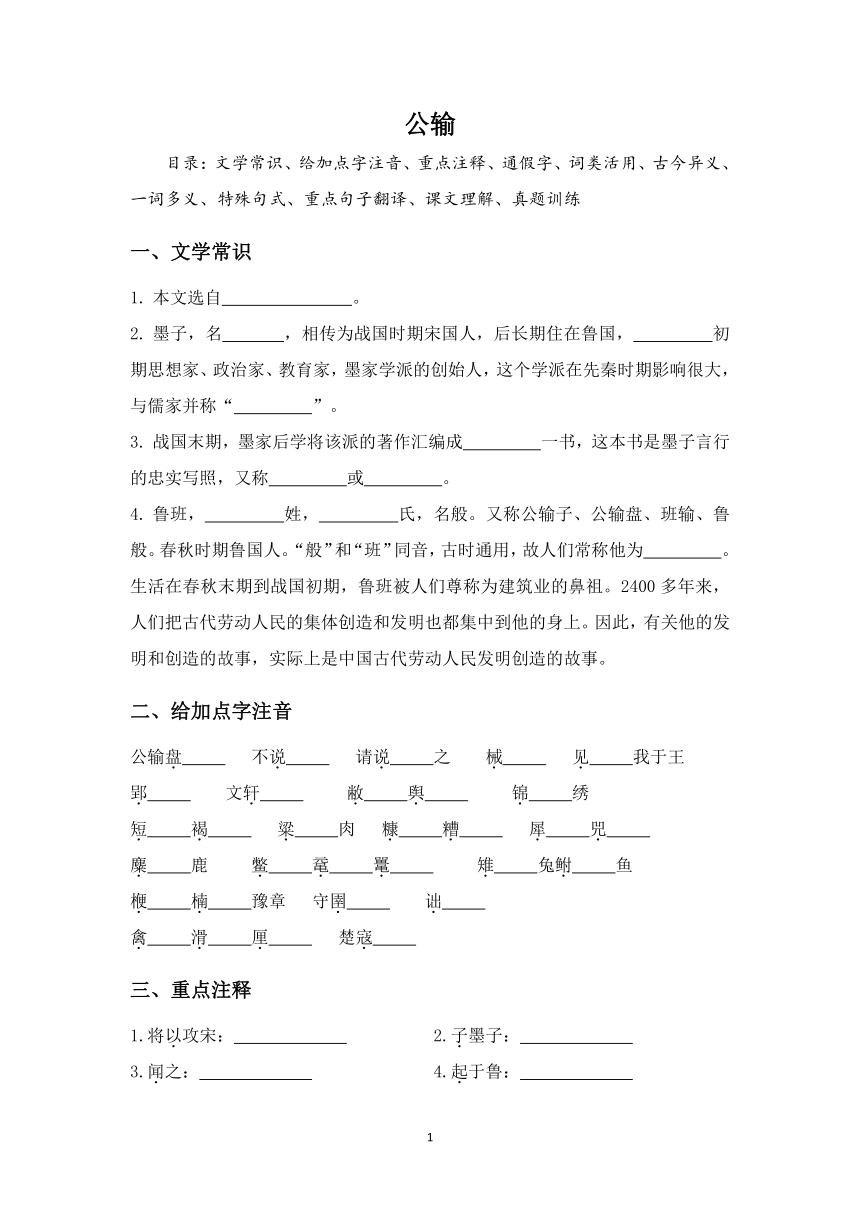 公输
目录：文学常识、给加点字注音、重点注释、通假字、词类活用、古今异义、
一词多义、特殊句式、重点句子翻译、课文理解、真题训练
一、文学常识
1. 本文选自_______________。
2. 墨子，名_______，相传为战国时期宋国人，后长期住在鲁国，_________初
期思想家、政治家、教育家，墨家学派的创始人，这个学派在先秦时期影响很大，
与儒家并称“_________”。
3. 战国末期，墨家后学将该派的著作汇编成_________一书，这本书是墨子言行
的忠实写照，又称_________或_________。
4. 鲁班，_________姓，_________氏，名般。又称公输子、公输盘、班输、鲁
般。春秋时期鲁国人。“般”和“班”同音，古时通用，故人们常称他为_________。
生活在春秋末期到战国初期，鲁班被人们尊称为建筑业的鼻祖。2400 多年来，
人们把古代劳动人民的集体创造和发明也都集中到他的身上。因此，有关他的发
明和创造的故事，实际上是中国古代劳动人民发明创造的故事。
二、给加点字注音
公输盘_____ 不说_____ 请说_____之 械_____ 见_____我于王
郢_____ 文轩_____ 敝_____舆_____ 锦_____绣
短_____褐_____ 粱_____肉 糠_____糟_____ 犀_____兕_____
麋_____鹿 鳖_____鼋_____鼍_____ 雉_____兔鲋_____鱼
楩_____楠_____豫章 守圉_____ 诎_____
禽_____滑_____厘_____ 楚寇_____
三、重点注释
1.将以攻宋：_____________ 2.子墨子：_____________
3.闻之：_____________ 4.起于鲁：_____________
1